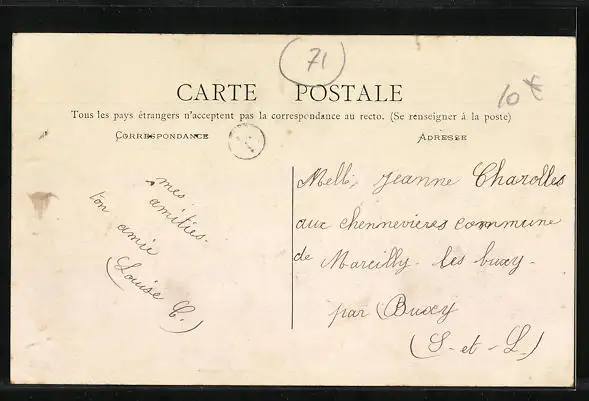 71
10
CARTE POSTALE
Tous les pays étrangers n'acceptent pas la correspondance au recto. (Se renseigner à la poste)
CORRESPONDANCE
ADRESSE
mes
amitiés.
ton amie
(Louise C.)
Melle Jeanne Charolles
aux chennevières commune
de Marcilly. les buxy.
par Buxy
(S-et-L)